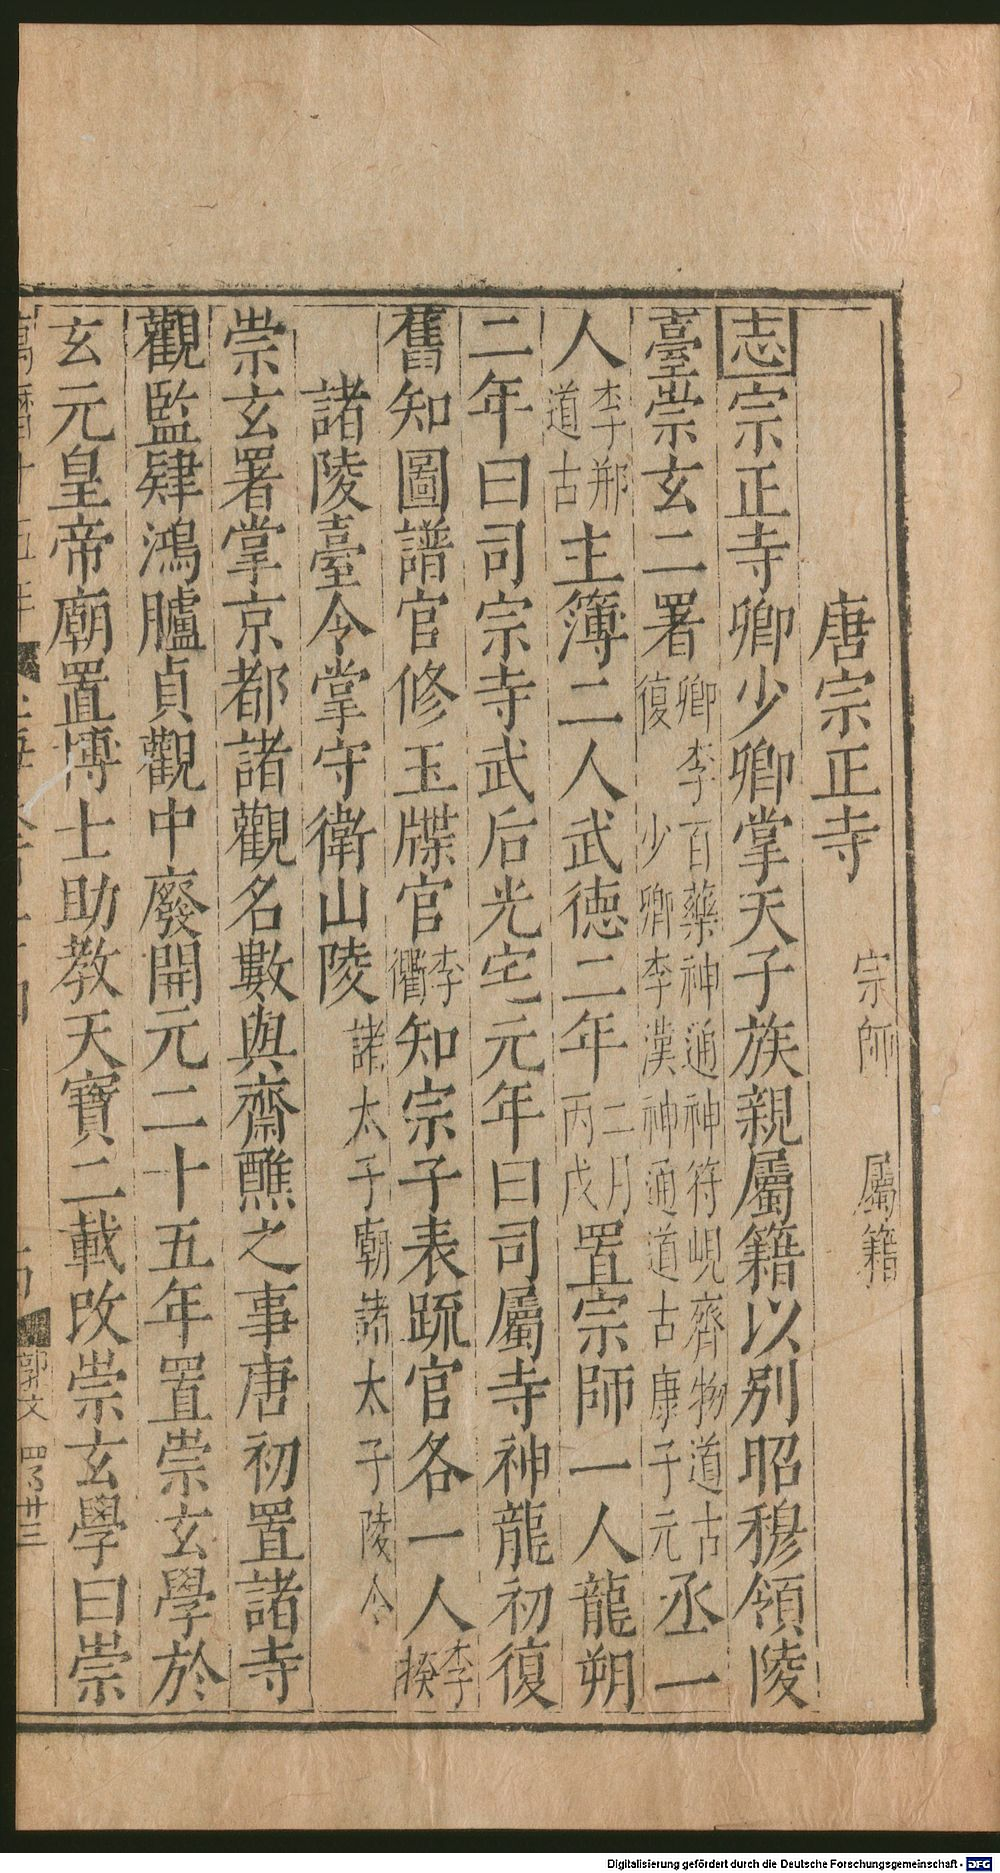 唐宗正寺 宗師 屬籍
志宗正寺卿少卿掌天子族親屬籍以別昭穆領陵
臺崇玄二署卿李百藥神通神符峴齊物道古復少卿李漢神通道古康子元丞一
人李那道古主簿二人武德二年二月丙戌置宗師一人龍朔
二年曰司宗寺武后光宅元年曰司屬寺神龍初復
舊知圖譜官修玉牒官李衢知宗子表疏官各一人李揆
諸陵臺令掌守衛山陵諸太子朝諸太子陵令
崇玄署掌京都諸觀名數與齋醮之事唐初置諸寺
觀監肄鴻臚貞觀中廢開元二十五年置崇玄學於
玄元皇帝廟置博士助教天寶二載改崇玄學曰崇
郭文 四百卅三
Digitalisierung gefördert durch die Deutsche Forschungsgemeinschaft - DFG